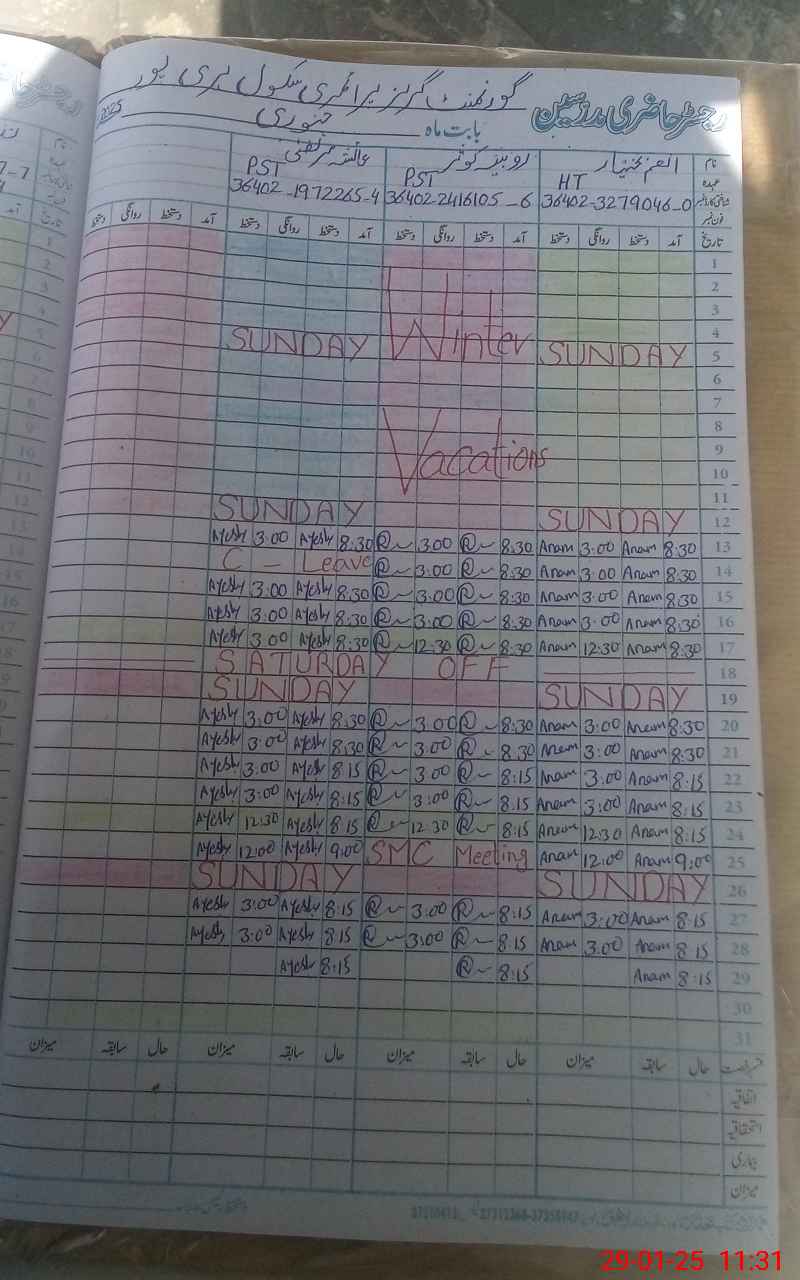 رجسٹر حاضری مدرسین
گورنمنٹ گرلز پرائمری سکول ہری پور
بابت ماہ جنوری 2025
نام روبینہ کوثر عائشہ مرتضیٰ
عہدہ HT PST PST
36402-3279046-0 36402-2416105-6 36402-1972265-4
فون نمبر
تاریخ آمد دستخط روانگی دستخط آمد دستخط روانگی دستخط آمد دستخط روانگی دستخط آمد دستخط روانگی دستخط
1
2
3
4
SUNDAY Winter SUNDAY 5
6
7
8
Vacations 9
10
11
SUNDAY SUNDAY 12
Ayesh 3:00 Ayesh 8:30 R 3:00 R 8:30 Anam 3:00 Anam 8:30 13
C - Leave R 3:00 R 8:30 Anam 3:00 Anam 8:30 14
Ayesh 3:00 Ayesh 8:30 R 3:00 R 8:30 Anam 3:00 Anam 8:30 15
Ayesh 3:00 Ayesh 8:30 R 3:00 R 8:30 Anam 3:00 Anam 8:30 16
Ayesh 3:00 Ayesh 8:30 R 12:30 R 8:30 Anam 12:30 Anam 8:30 17
SATURDAY OFF 18
SUNDAY SUNDAY 19
Ayesh 3:00 Ayesh 8:30 R 3:00 R 8:30 Anam 3:00 Anam 8:30 20
Ayesh 3:00 Ayesh 8:30 R 3:00 R 8:30 Anam 3:00 Anam 8:30 21
Ayesh 3:00 Ayesh 8:15 R 3:00 R 8:15 Anam 3:00 Anam 8:15 22
Ayesh 3:00 Ayesh 8:15 R 3:00 R 8:15 Anam 3:00 Anam 8:15 23
Ayesh 12:30 Ayesh 8:15 R 12:30 R 8:15 Anam 12:30 Anam 8:15 24
Ayesh 12:00 Ayesh 9:00 SMC Meeting Anam 12:00 Anam 9:00 25
SUNDAY SUNDAY 26
Ayesh 3:00 Ayesh 8:15 R 3:00 R 8:15 Anam 3:00 Anam 8:15 27
Ayesh 3:00 Ayesh 8:15 R 3:00 R 8:15 Anam 3:00 Anam 8:15 28
Ayesh 8:15 R 8:15 Anam 8:15 29
30
31
رخصت حال سابقہ میزان حال سابقہ میزان حال سابقہ میزان حال سابقہ میزان
اتفاقیہ
استحقاقیہ
بیماری
میزان
29-01-25 11:31